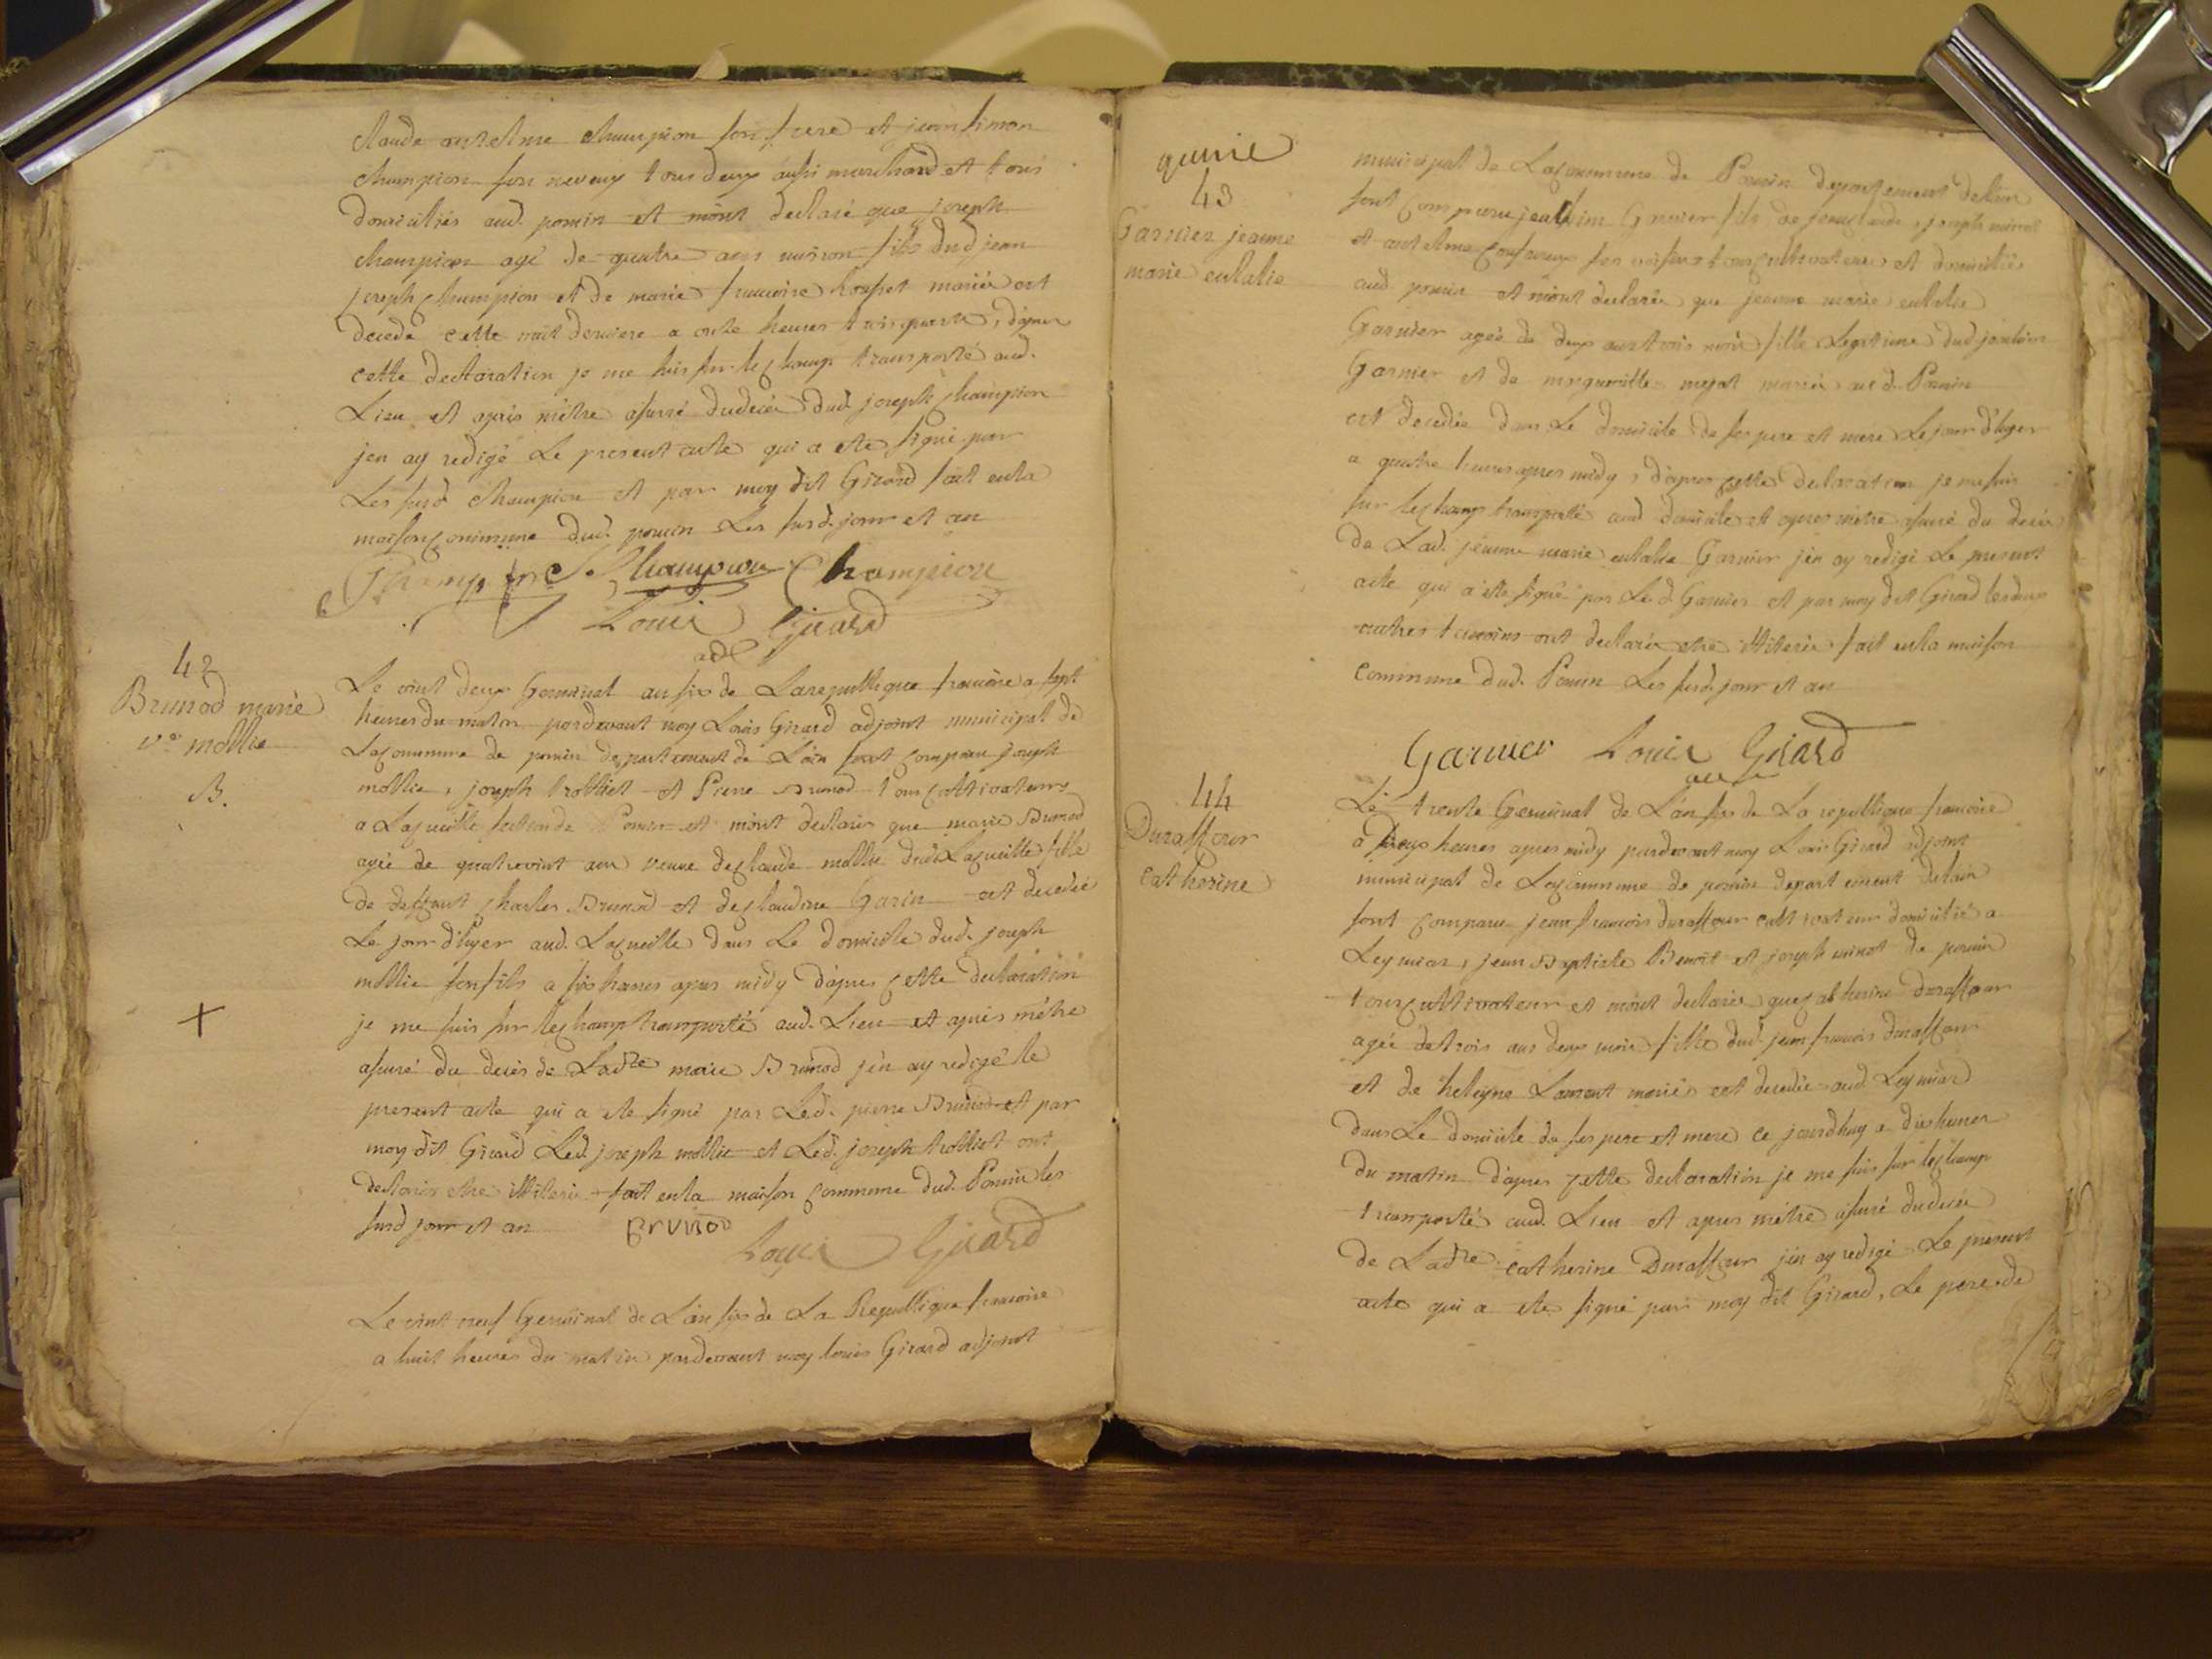 claude antelme Champion son frere et jean simon
Champion son neveux tous deux aussi marchand et tous
domiciliés aud. poncin et m'ont declaré que joseph
champion agé de quatre ans environ fils dud jean
joseph champion et de marie francoise mariés est
decedé cette nuit derniere a onze heures trois quarts, d'apres
cette declaration je me suis sur le champ transporté aud.
Lieu et apres m'etre assuré du deces dud. joseph champion
jen ay redigé Le present acte qui a ete signé par
Les susd champion et par moy dit Girard fait en la
maison commune dud. poncin Les susd. jour et an
Champion Champion Champion
Louis Girard
adt
42
Brunod marie
ve mollie
B.
Le vint deux Germinal an six de La republique francoise a sept
heures du matin pardevant moy Louis Girard adjoint municipal de
La commune de poncin departement de L'ain sont comparu joseph
mollie, joseph trolliet et Pierre Brunod tous cultivateurs
a La cueille section de Poncin et m'ont declaré que marie Brunod
agée de quatrevint ans veuve de claude mollie dud. La cueille fille
de deffunt charles Brunod et de claudine Garin est decedée
Le jour d'hyer aud. La cueille dans Le domicile dud. joseph
mollie son fils a six heures apres midy d'apres cette declaration
je me suis sur le champ transporté aud. Lieu et apres m'etre
assuré du deces de Ladte marie Brunod j'en ay redigé le
present acte qui a ete signé par Led. pierre Brunod et par
moy dit Girard Led. joseph mollie et Led. joseph trolliet ont
declarés etre illiterés fait en la maison commune dud. Poncin les
susd jour et an Brunod
Louis Girard
Le vint neuf Germinal de L'an six de La Republique francoise
a huit heures du matin pardevant moy Louis Girard adjoint
43
Garnier jeanne
marie eulalie
municipal de La commune de Poncin departement de Lain
sont comparu Garnier fils de jean claude, joseph minot
et antelme ses voisins tous cultivateurs et domiciliés
aud. poncin et m'ont declarés que jeanne marie eulalie
Garnier agée de deux ans trois mois fille Legitime dud
Garnier et de marguerite mariés aud. Poncin
est decedée dans Le domicile de ses pere et mere Le jour d'hyer
a quatre heures apres midy, d'apres cette declaration je me suis
sur le champ transporté aud domicile et apres m'etre assuré du deces
de Lad. jeanne marie eulalie Garnier j'en ay redigé Le present
acte qui a ete signé par Le d. Garnier et par moy dit Girard les deux
autres temoins ont declarés etre illiterés fait en la maison
commune dud. Poncin Les susd. jour et an
Garnier Louis Girard
44
Duraffour
catherine
Le trente Germinal de L'an six de La republique francoise
a deux heures apres midy pardevant moy Louis Girard adjoint
municipal de La commune de poncin departement de lain
sont comparu jean francois duraffour cultivateur domicilié a
Leymiar, jean Baptiste Benoit et joseph minot de poncin
tous cultivateur et m'ont declarés que catherine duraffour
agée de trois ans deux mois fille dud. jean francois duraffour
et de heleyne Laurent mariés est decedée aud. Leymiar
dans Le domicile de ses pere et mere ce jourdhuy a dix heures
du matin d'apres cette declaration je me suis sur le champ
transporté aud. Lieu et apres m'etre assuré du deces
de Ladte catherine Duraffour j'en ay redigé Le present
acte qui a ete signé par moy dit Girard, Le pere de